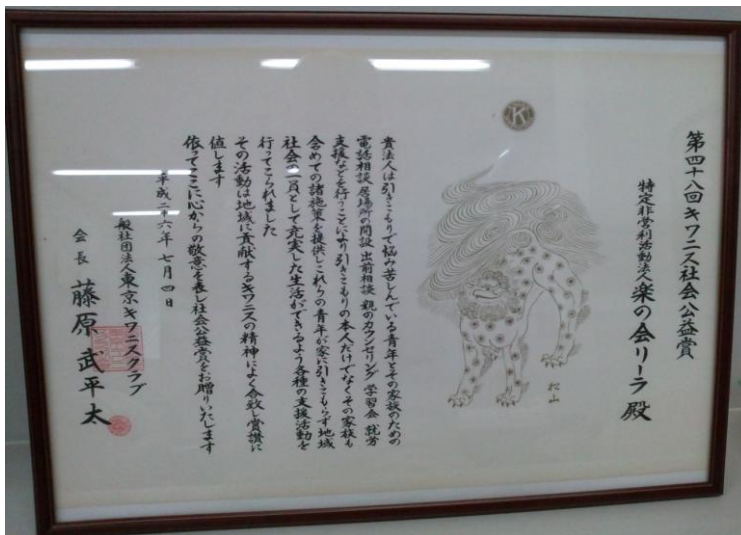 第四十八回キワニス社会公益賞
特定非営利活動法人 楽の会リーラ 殿
K
松山
貴法人は引きこもりで悩み苦しんでいる青年とその家族のための
電話相談 居場所の開設 出前相談 親のカウンセリング 学習会 就労
支援などを行うことにより引きこもりの本人だけでなくその家族も
含めての諸施策を提供しこれらの青年が家に引きこもらず地域
社会の一員として充実した生活ができるよう各種の支援活動を
行ってこられました
その活動は地域に貢献するキワニスの精神によく合致し賞讃に
値します
依ってここに心からの敬意を表し社会公益賞をお贈りいたします
平成二十六年 七月 四日
一般社団法人東京キワニスクラブ
会長 藤原武平太